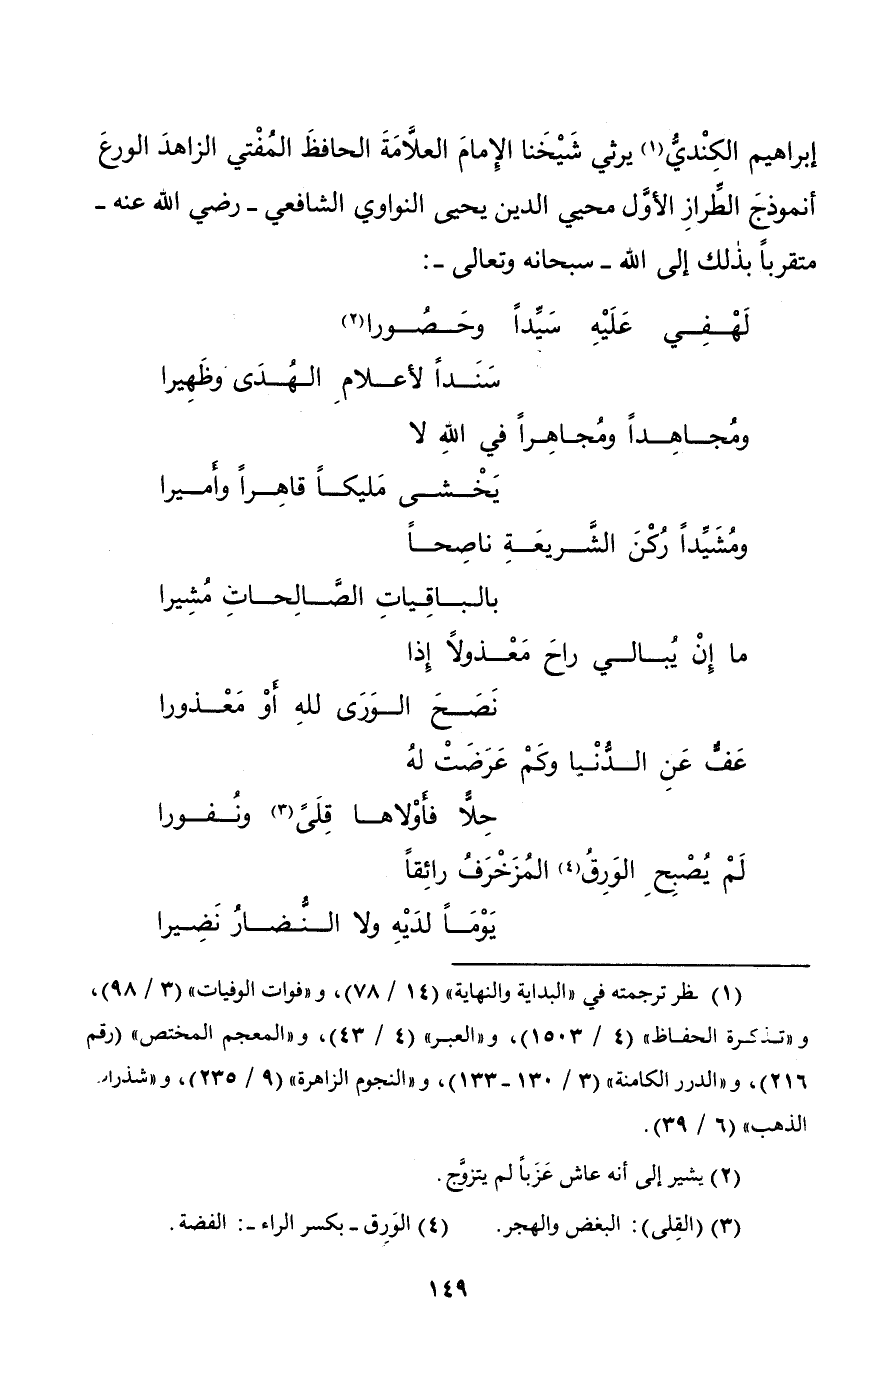 إبراهيم الكِنْديُّ(١) يرثي شَيْخَنا الإِمامَ العلاَّمَةَ الحافظَ المُفْتي الزاهدَ الورعَ
أنموذجَ الطِّرازِ الأوَّل محيي الدين يحيى النواوي الشافعي ـ رضي الله عنه ـ
متقرباً بذٰلك إلى الله ـ سبحانه وتعالى ـ:
لَهْـــفِـــي عَلَيْهِ سَيِّداً وحَــصُــورا(٢)
سَنَــداً لأعــلامِ الــهُــدَى وظَهِيرا
ومُجــاهِــداً ومُجـاهِـراً في اللهِ لا
يَخْــشــى مَليكــاً قاهِــراً وأَمـيرا
ومُشَيِّداً رُكْنَ الشَّــريعَــةِ ناصِحــاً
بالـبــاقِـيـاتِ الصَّــالِحــاتِ مُشِيرا
ما إِنْ يُبــالــي راحَ مَعْــذولاً إِذا
نَصَــحَ الــوَرَى للهِ أَوْ مَعْــذورا
عَفٌّ عَنِ الــدُّنْـيـا وكَمْ عَرَضَتْ لهُ
حِلاًّ فأَوْلاهــا قِلَىً(٣) ونُــفــورا
لَمْ يُصْبِحِ الوَرِقُ(٤) المُزَخْرَفُ رائِقاً
يَوْمَــاً لدَيْهِ ولا الــنُّـضــارُ نَضِـيرا
(١) ظر ترجمته في «البداية والنهاية» (١٤ / ٧٨)، و «فوات الوفيات» (٣ / ٩٨)،
و «تـذكـرة الحفـاظ» (٤ / ١٥٠٣)، و «العبـر» (٤ / ٤٣)، و «المعجم المختص» (رقم
٢١٦)، و «الدرر الكامنة» (٣ / ١٣٠ ـ ١٣٣)، و «النجوم الزاهرة» (٩ / ٢٣٥)، و «شذرات
الذهب» (٦ / ٣٩).
(٢) يشير إلى أنه عاش عَزَباً لم يتزوَّج.
(٣) (القِلى): البغض والهجر. (٤) الوَرِق ـ بكسر الراء ـ: الفضة.
١٤٩